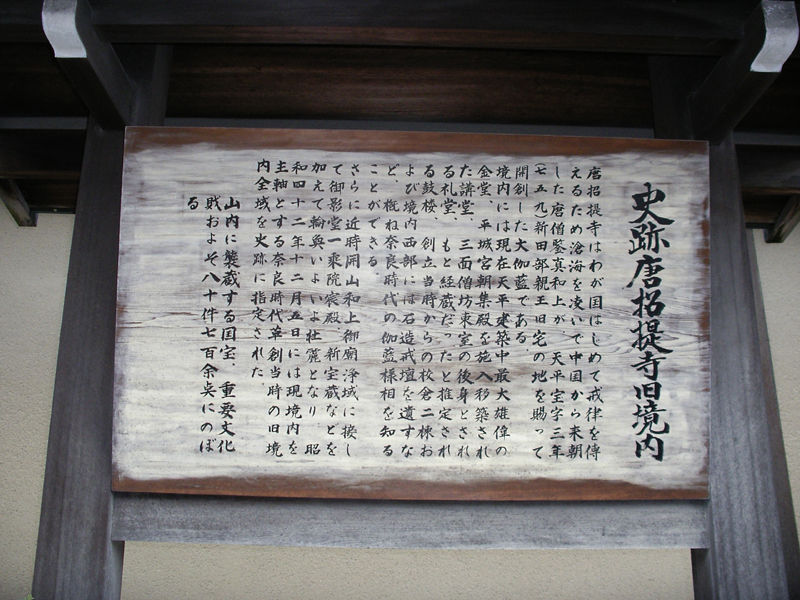 史跡唐招提寺旧境内
唐招提寺はわが国はじめて戒律を傳
えるため滄海を凌いで中国から来朝
した唐僧鑒真和上が、天平宝字三年
(七五九)新田部親王旧宅の地を賜って
開創した大伽藍である。
境内には現在天平建築中最大雄偉の
金堂、平城宮朝集殿を施入移築され
た講堂、三面僧坊東室の後身とされ
る礼堂、もと経蔵だったと推定され
る鼓楼、創立当時からの校倉二棟お
よび境内西部には石造戒壇を遺すな
ど、概ね奈良時代の伽藍様相を知る
ことができる。
さらに近時開山和上御廟浄域に接し
て御影堂一乗院宸殿、新宝蔵などを
加えて輪奐いよいよ壮麗となり、昭
和四十二年十二月五日には現境内を
主軸とする奈良時代草創当時の旧境
内全域を史跡に指定された。
山内に襲蔵する国宝、重要文化
財およそ八十件七百余点にのぼ
る